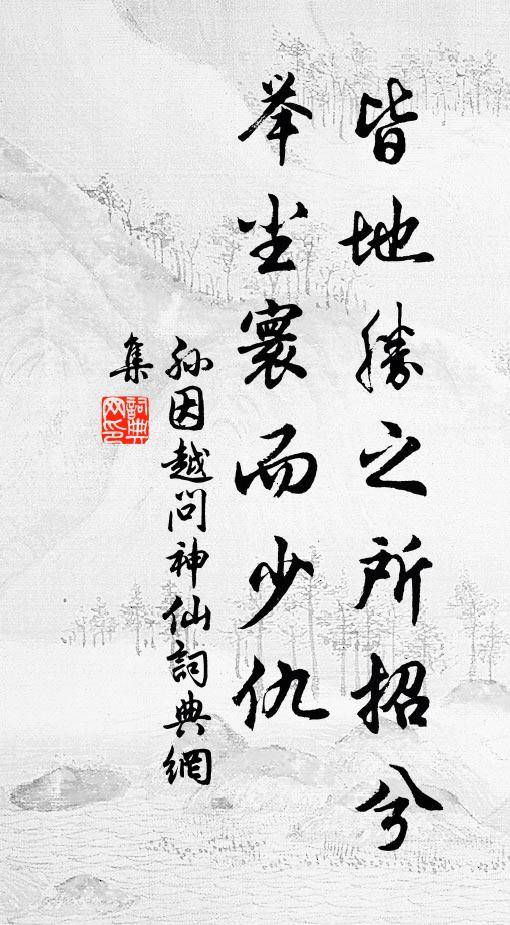 皆地勝之所招兮
举尘寰而少仇
孙因越问神仙詞典網
集
詞典
网印